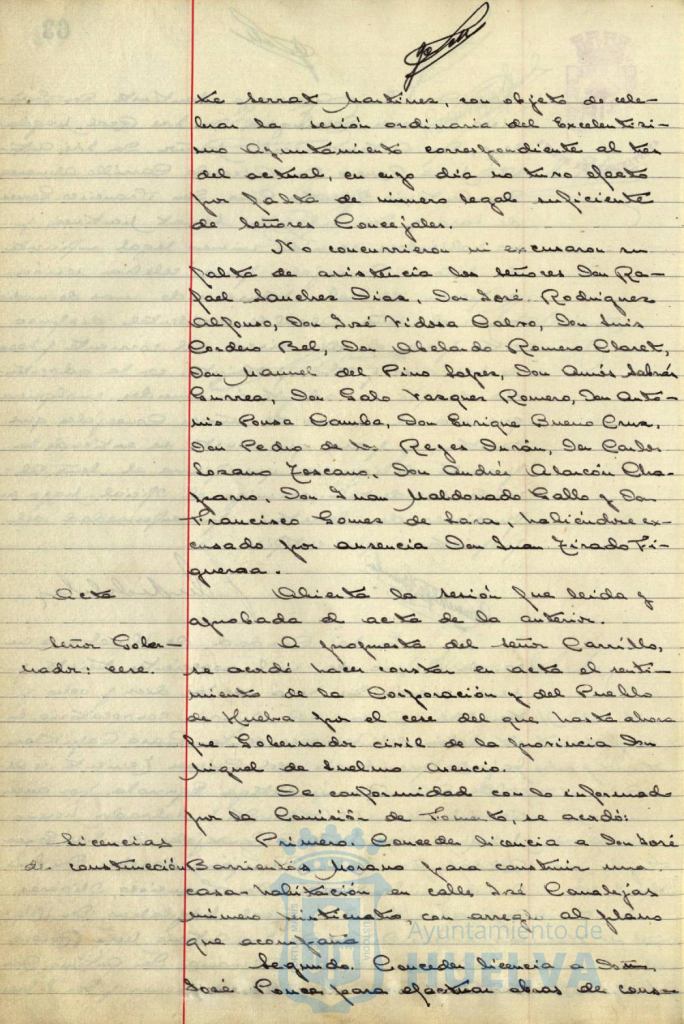 te Serrat Martinez, con objeto de cele-
brar la sesión ordinaria del Excelentisi-
mo Ayuntamiento correspondiente al tres
del actual, en cuyo dia no tuvo efecto
por falta de número legal suficiente
de Señores Concejales.
No concurrieron ni excusaron su
falta de asistencia los señores Don Ra-
fael Sanchez Diaz, Don José Rodriguez
Alfonso, Don José Vidosa Calvo, Don Luis
Cordero Bel, Don Abelardo Romero Claret,
Don Manuel del Pino Lopez, Don Amós Sabrás
Gurrea, Don Galo Vazquez Romero, Don Anto-
nio Pousa Camba, Don Enrique Bueno Cruz,
Don Pedro de los Reyes Durán, Don Carlos
Lozano Toscano, Don Andrés Alarcón Cha-
parro, Don Juan Maldonado Gallo y Don
Francisco Gomez de Lara, habiéndose ex-
cusado por ausencia Don Juan Tirado Fi-
gueroa.
Acta
Abierta la sesión fue leida y
aprobada el acta de la anterior.
Señor Gober-
nador: cese.
A propuesta del señor Carrillo,
se acordó hacer constar en acta el senti-
miento de la Corporación y del Pueblo
de Huelva por el cese del que hasta ahora
fue Gobernador civil de la provincia Don
Miguel de Luelmo Asencio.
De conformidad con lo informado
por la Comisión de Fomento, se acordó:
Licencias
de construcción
Primero. Conceder licencia a Don José
Barrientos Moreno para construir una
casa-habitación en calles José Canalejas
número veinticuatro, con arreglo al plano
que acompaña
Segundo. Conceder licencia a Don
José Ponce para efectuar obras de cons-
Ayuntamiento de
HUELVA